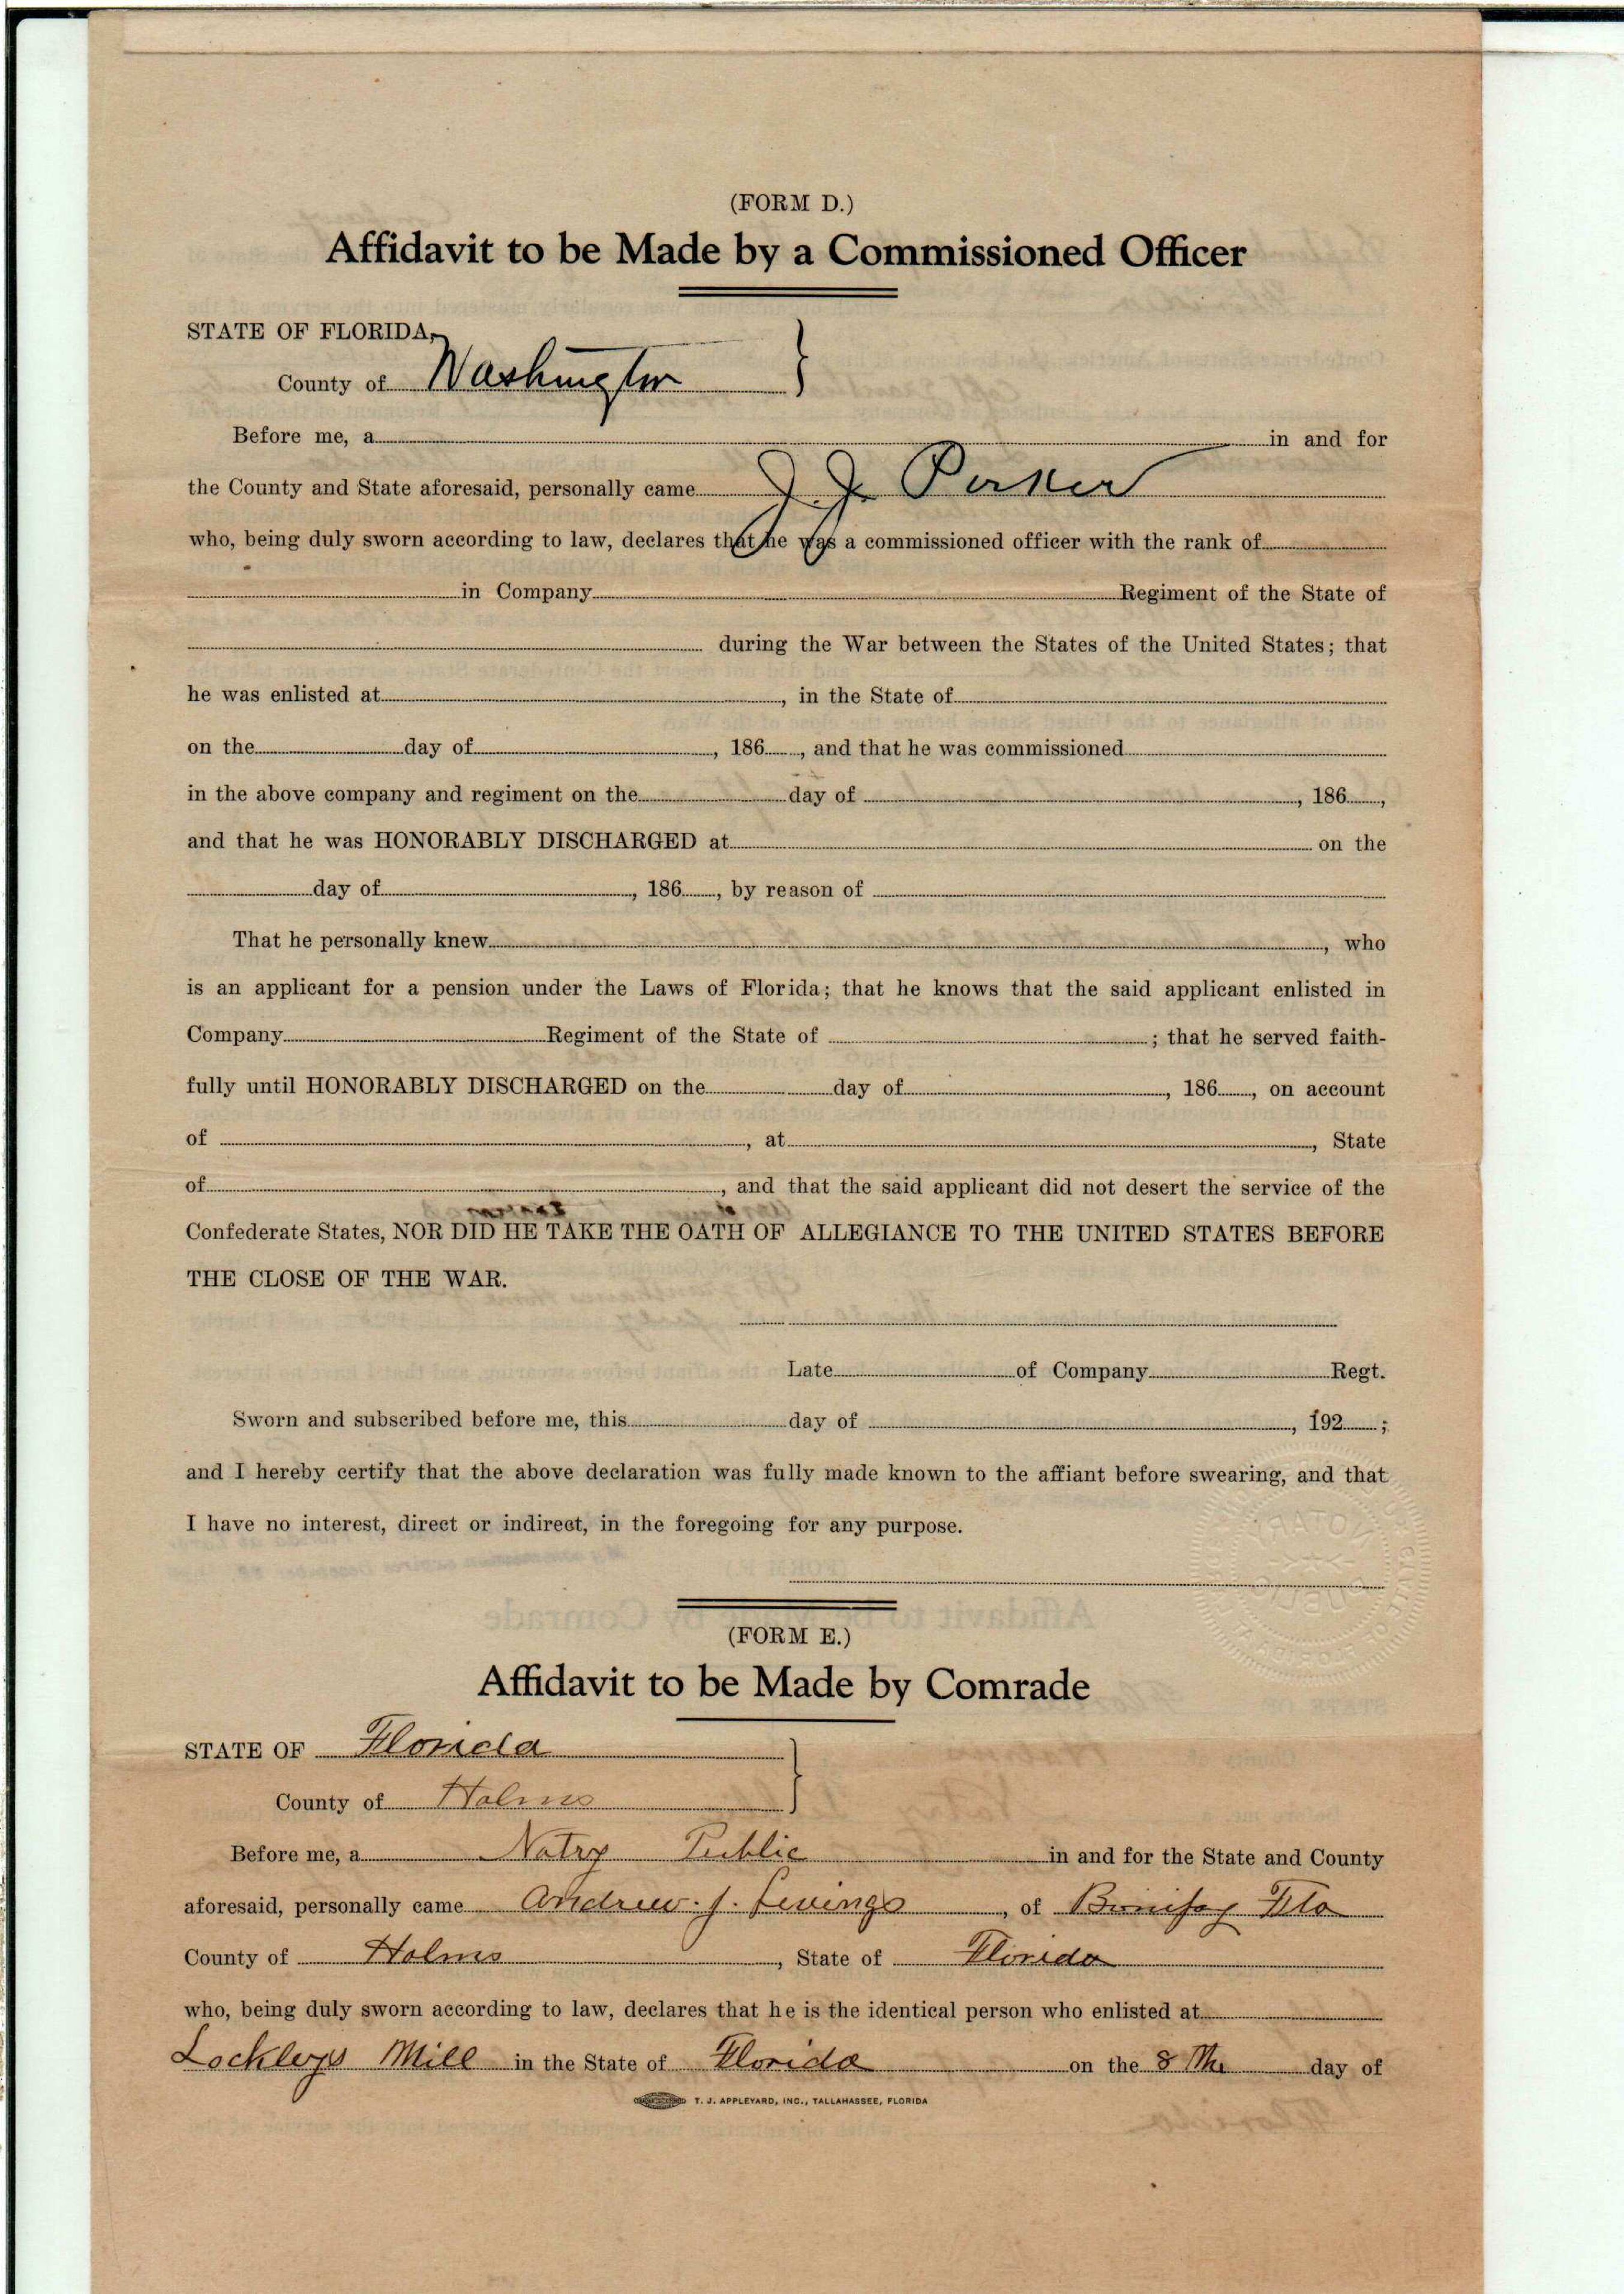 (FORM D.)
Affidavit to be Made by a Commissioned Officer
STATE OF FLORIDA,
County of Washington
Before me, a in and for
the County and State aforesaid, personally came J. J. Parker
who, being duly sworn according to law, declares that he was a commissioned officer with the rank of
in Company Regiment of the State of
during the War between the States of the United States; that
he was enlisted at , in the State of
on the day of , 186 , and that he was commissioned
in the above company and regiment on the day of , 186 ,
and that he was HONORABLY DISCHARGED at on the
day of , 186 , by reason of
That he personally knew , who
is an applicant for a pension under the Laws of Florida; that he knows that the said applicant enlisted in
Company Regiment of the State of ; that he served faith-
fully until HONORABLY DISCHARGED on the day of , 186 , on account
of , at , State
of , and that the said applicant did not desert the service of the
Confederate States, NOR DID HE TAKE THE OATH OF ALLEGIANCE TO THE UNITED STATES BEFORE
THE CLOSE OF THE WAR.
Late of Company Regt.
Sworn and subscribed before me, this day of , 192 ;
and I hereby certify that the above declaration was fully made known to the affiant before swearing, and that
I have no interest, direct or indirect, in the foregoing for any purpose.
NOTARY
PUBLIC
(FORM E.)
Affidavit to be Made by Comrade
STATE OF Florida
County of Holms
Before me, a Notry Public in and for the State and County
aforesaid, personally came Andrew. J. , of Bonifay Fla
County of Holms , State of Florida
who, being duly sworn according to law, declares that he is the identical person who enlisted at
Mill in the State of Florida on the 8 day of
T. J. APPLEYARD, INC., TALLAHASSEE, FLORIDA